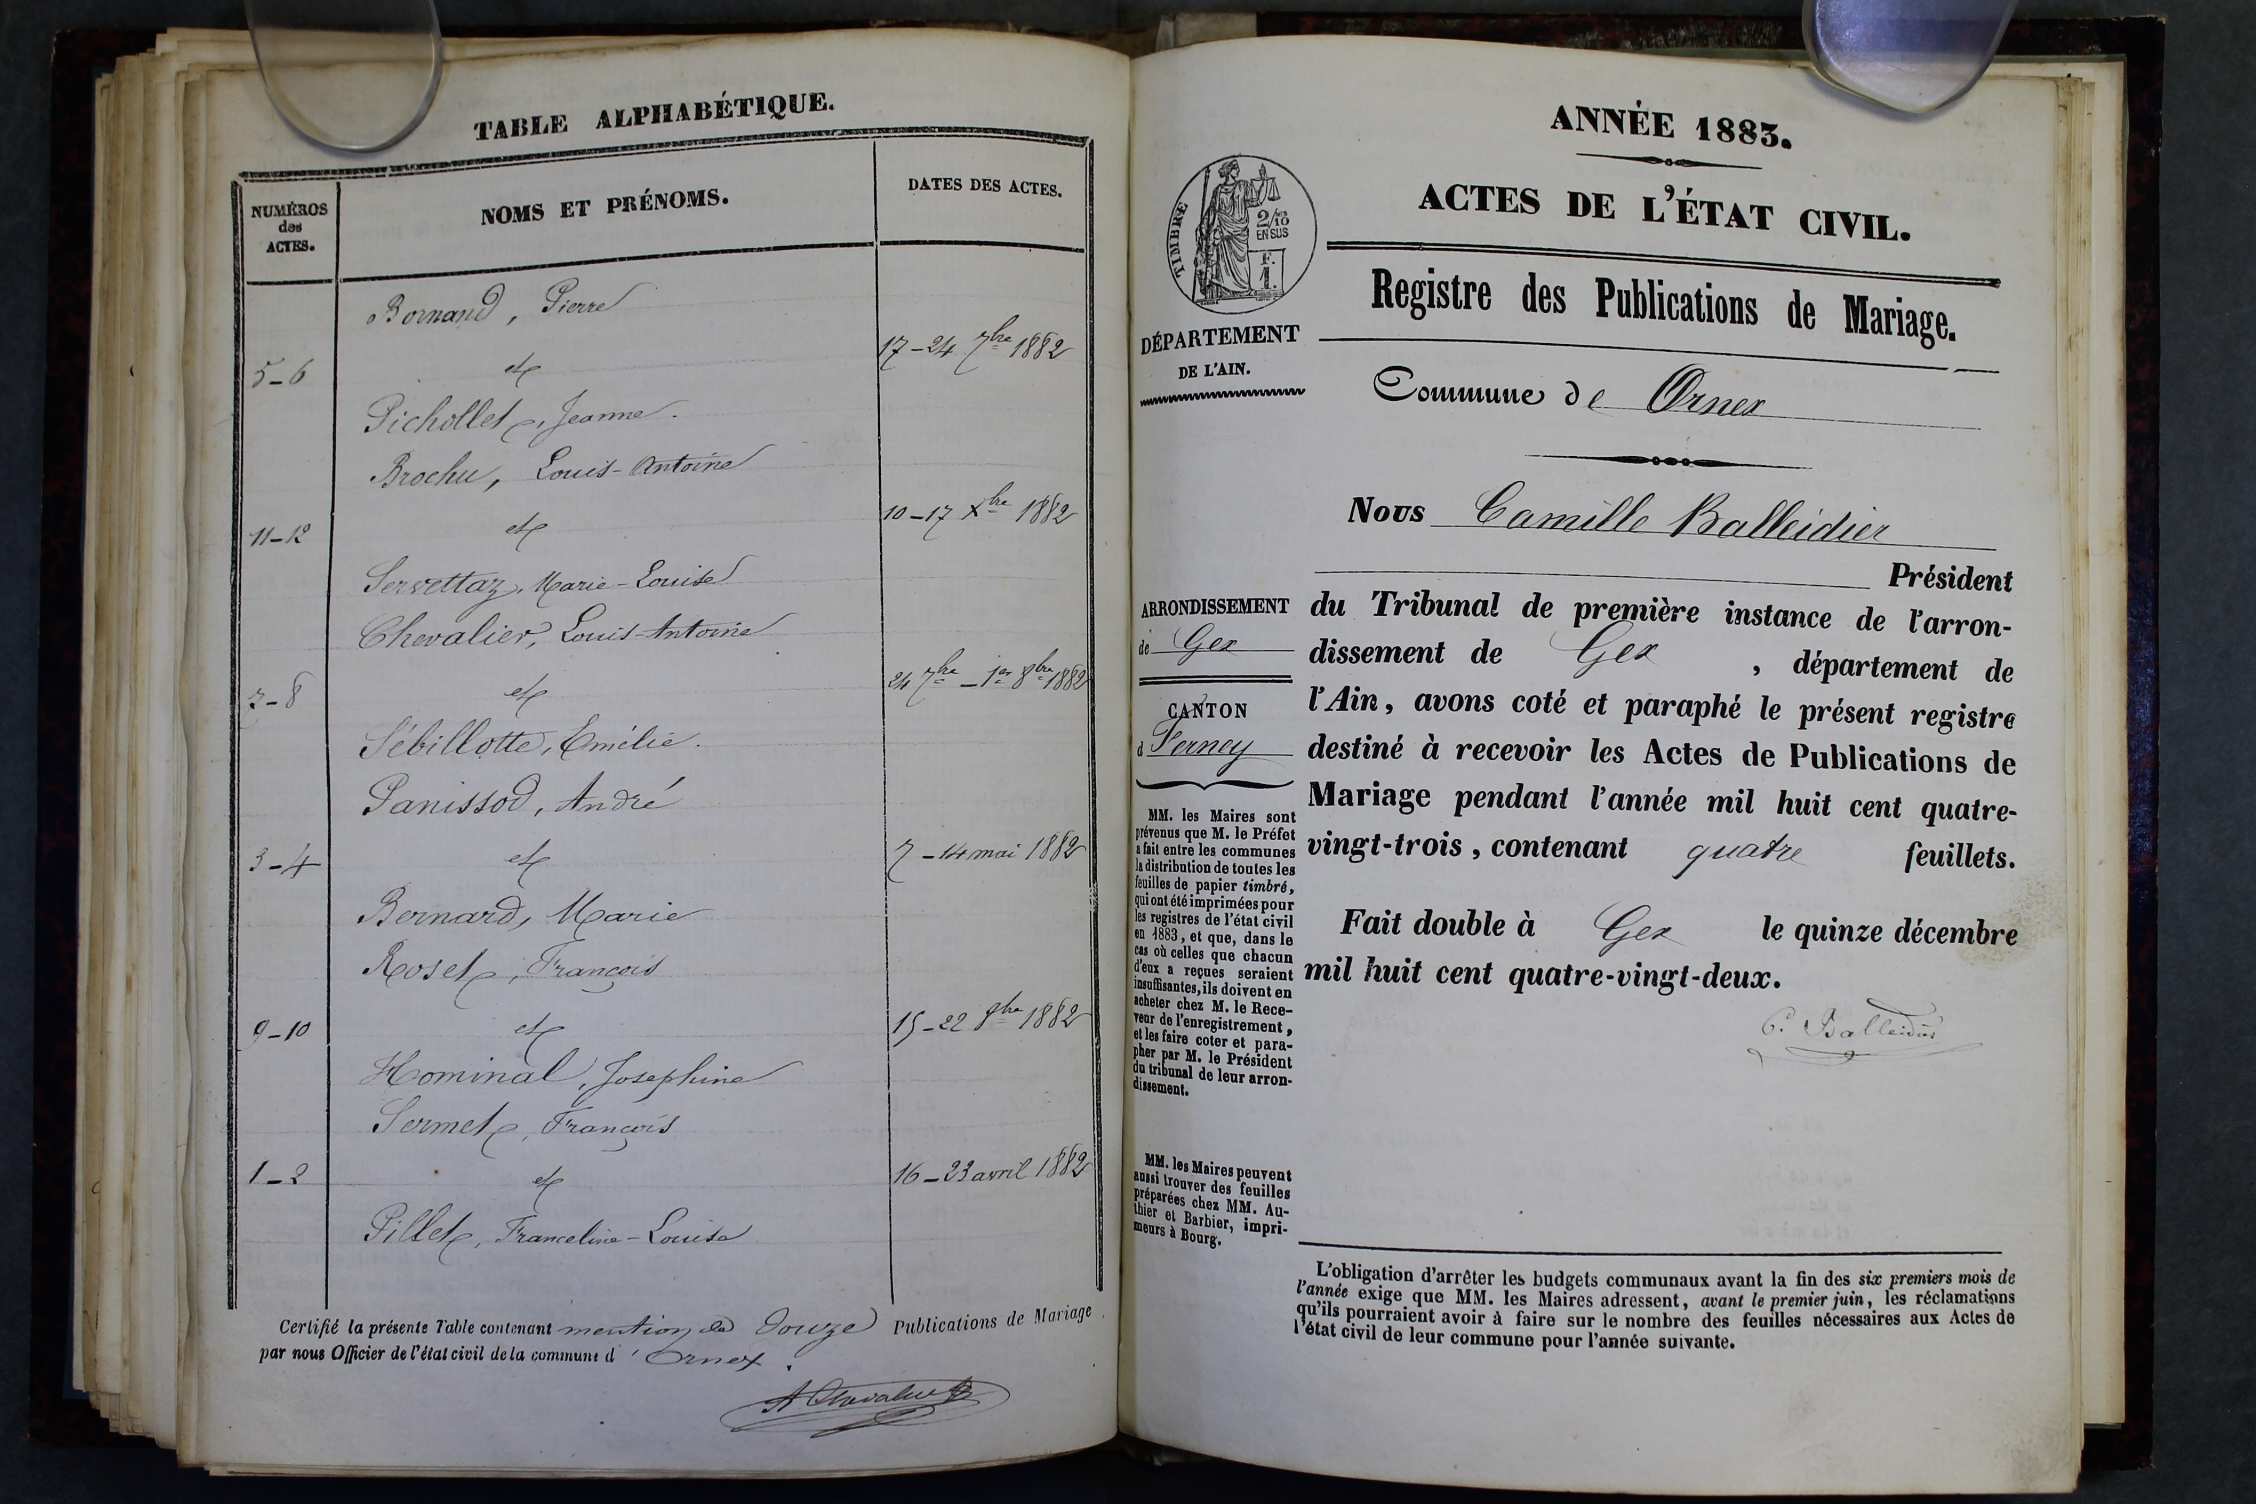 TABLE ALPHABÉTIQUE.
NUMÉROS
des
ACTES.
NOMS ET PRÉNOMS.
DATES DES ACTES.
Bornand, Pierre
5-6 et 17-24 7bre 1882
Pichollet, Jeanne.
Brochu, Louis-Antoine
11-12 et 10-17 Xbre 1882
Servettaz, Marie-Louise
Chevalier, Louis-Antoine
7-8 et 24 7bre - 1er 8bre 1882
Sébillotte, Emélie.
Panissod, André
3-4 et 7-14 mai 1882
Bernard, Marie
Roset, François
9-10 et 15-22 8bre 1882
Hominal, Josephine
Sermet, François
1-2 et 16-23 avril 1882
Pillet, Franceline-Louise
Certifié la présente Table contenant mention de douze Publications de Mariage
par nous Officier de l'état civil de la commune d'Ornex.
ANNÉE 1883.
ACTES DE L'ÉTAT CIVIL.
TIMBRE
2/10
EN SUS
F.
1.
Registre des Publications de Mariage.
DÉPARTEMENT
DE L'AIN.
Commune de Ornex
Nous Camille Balleidier
Président
ARRONDISSEMENT
de Gex
CANTON
d Ferney
du Tribunal de première instance de l'arron-
dissement de Gex, département de
l'Ain, avons coté et paraphé le présent registre
destiné à recevoir les Actes de Publications de
Mariage pendant l'année mil huit cent quatre-
vingt-trois, contenant quatre feuillets.
Fait double à Gex le quinze décembre
mil huit cent quatre-vingt-deux.
C. Balleidier
MM. les Maires sont
prévenus que M. le Préfet
a fait entre les communes
la distribution de toutes les
feuilles de papier timbré,
qui ont été imprimées pour
les registres de l'état civil
en 1883, et que, dans le
cas où celles que chacun
d'eux a reçues seraient
insuffisantes, ils doivent en
acheter chez M. le Rece-
veur de l'enregistrement,
et les faire coter et para-
pher par M. le Président
du tribunal de leur arron-
dissement.
MM. les Maires peuvent
aussi trouver des feuilles
préparées chez MM. Au-
thier et Barbier, impri-
meurs à Bourg.
L'obligation d'arrêter les budgets communaux avant la fin des six premiers mois de
l'année exige que MM. les Maires adressent, avant le premier juin, les réclamations
qu'ils pourraient avoir à faire sur le nombre des feuilles nécessaires aux Actes de
l'état civil de leur commune pour l'année suivante.